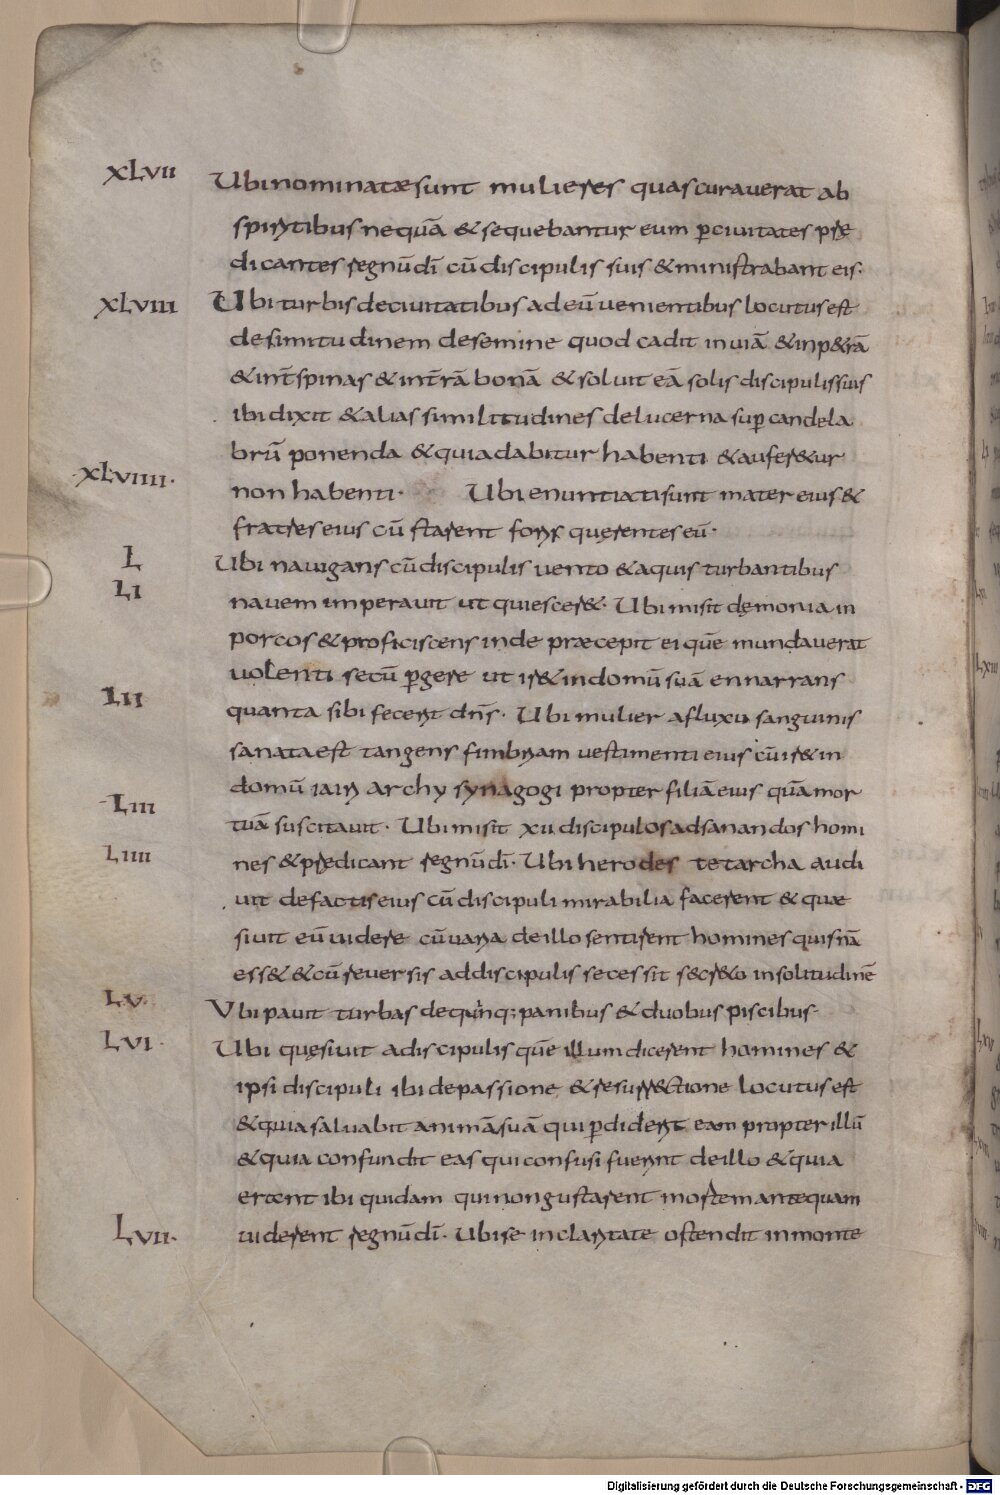 XLVII Ubi nominatae sunt mulieres quas curauerat ab
spiritibus nequā & sequebantur eum p̄ciuitates prę
dicantes regnūdī cū discipulis suis & ministrabant eis·
XLVIII Ubi turbis deciuitatibus ad eū uenientibus locutus est
desimitudinem desemine quod cadit in uiā & inp&rā
& int̄ spinas & int̄rā bonā & soluit eā solis discipulis suis
ibi dixit & alias similitudines delucerna sup̄ candela
brū ponenda & quia dabitur habenti & aufer&ur
XLVIIII· non habenti· Ubi enuntiati sunt mater eius &
fratres eius cū starent foris querentes eū·
L Ubi nauigans cū discipulis uento & aquis turbantibus
LI nauem imperauit ut quiescer&· Ubi misit demonia in
porcos & proficiscens inde praecepit ei quē mundauerat
uolenti secū p̄gere ut ir& in domū suā ennarrans
LII quanta sibi fecerit dn̄s· Ubi mulier afluxu sanguinis
sanata est tangens fimbriam uestimenti eius cū ir& in
domū iairi archy synagogi propter filiā eius quā mor
LIII tuā suscitauit· Ubi misit xii discipulos ad sanandos homi
LIIII nes & prędicant regnūdī· Ubi herodes tetarcha audi
uit defactis eius cū discipuli mirabilia facerent & quae
siuit eū uidere cū uaria deillo sentirent homines quis nā
ess& & cū reuersis ad discipulis secessit secr&o in solitudinē
LV· Ubi pauit turbas de quinq; panibus & duobus piscibus·
LVI· Ubi quęsiuit adiscipulis quē illum dicerent homines &
ipsi discipuli ibi depassione & resurr&ctione locutus est
& quia saluabit animā suā qui p̄diderit eam propter illū
& quia confundit eas qui confusi fuerint deillo & quia
ertent ibi quidam qui non gustarent mortem antequam
LVII· uiderent regnūdī· Ubi se in claritate ostendit in monte
Digitalisierung gefördert durch die Deutsche Forschungsgemeinschaft - DFG